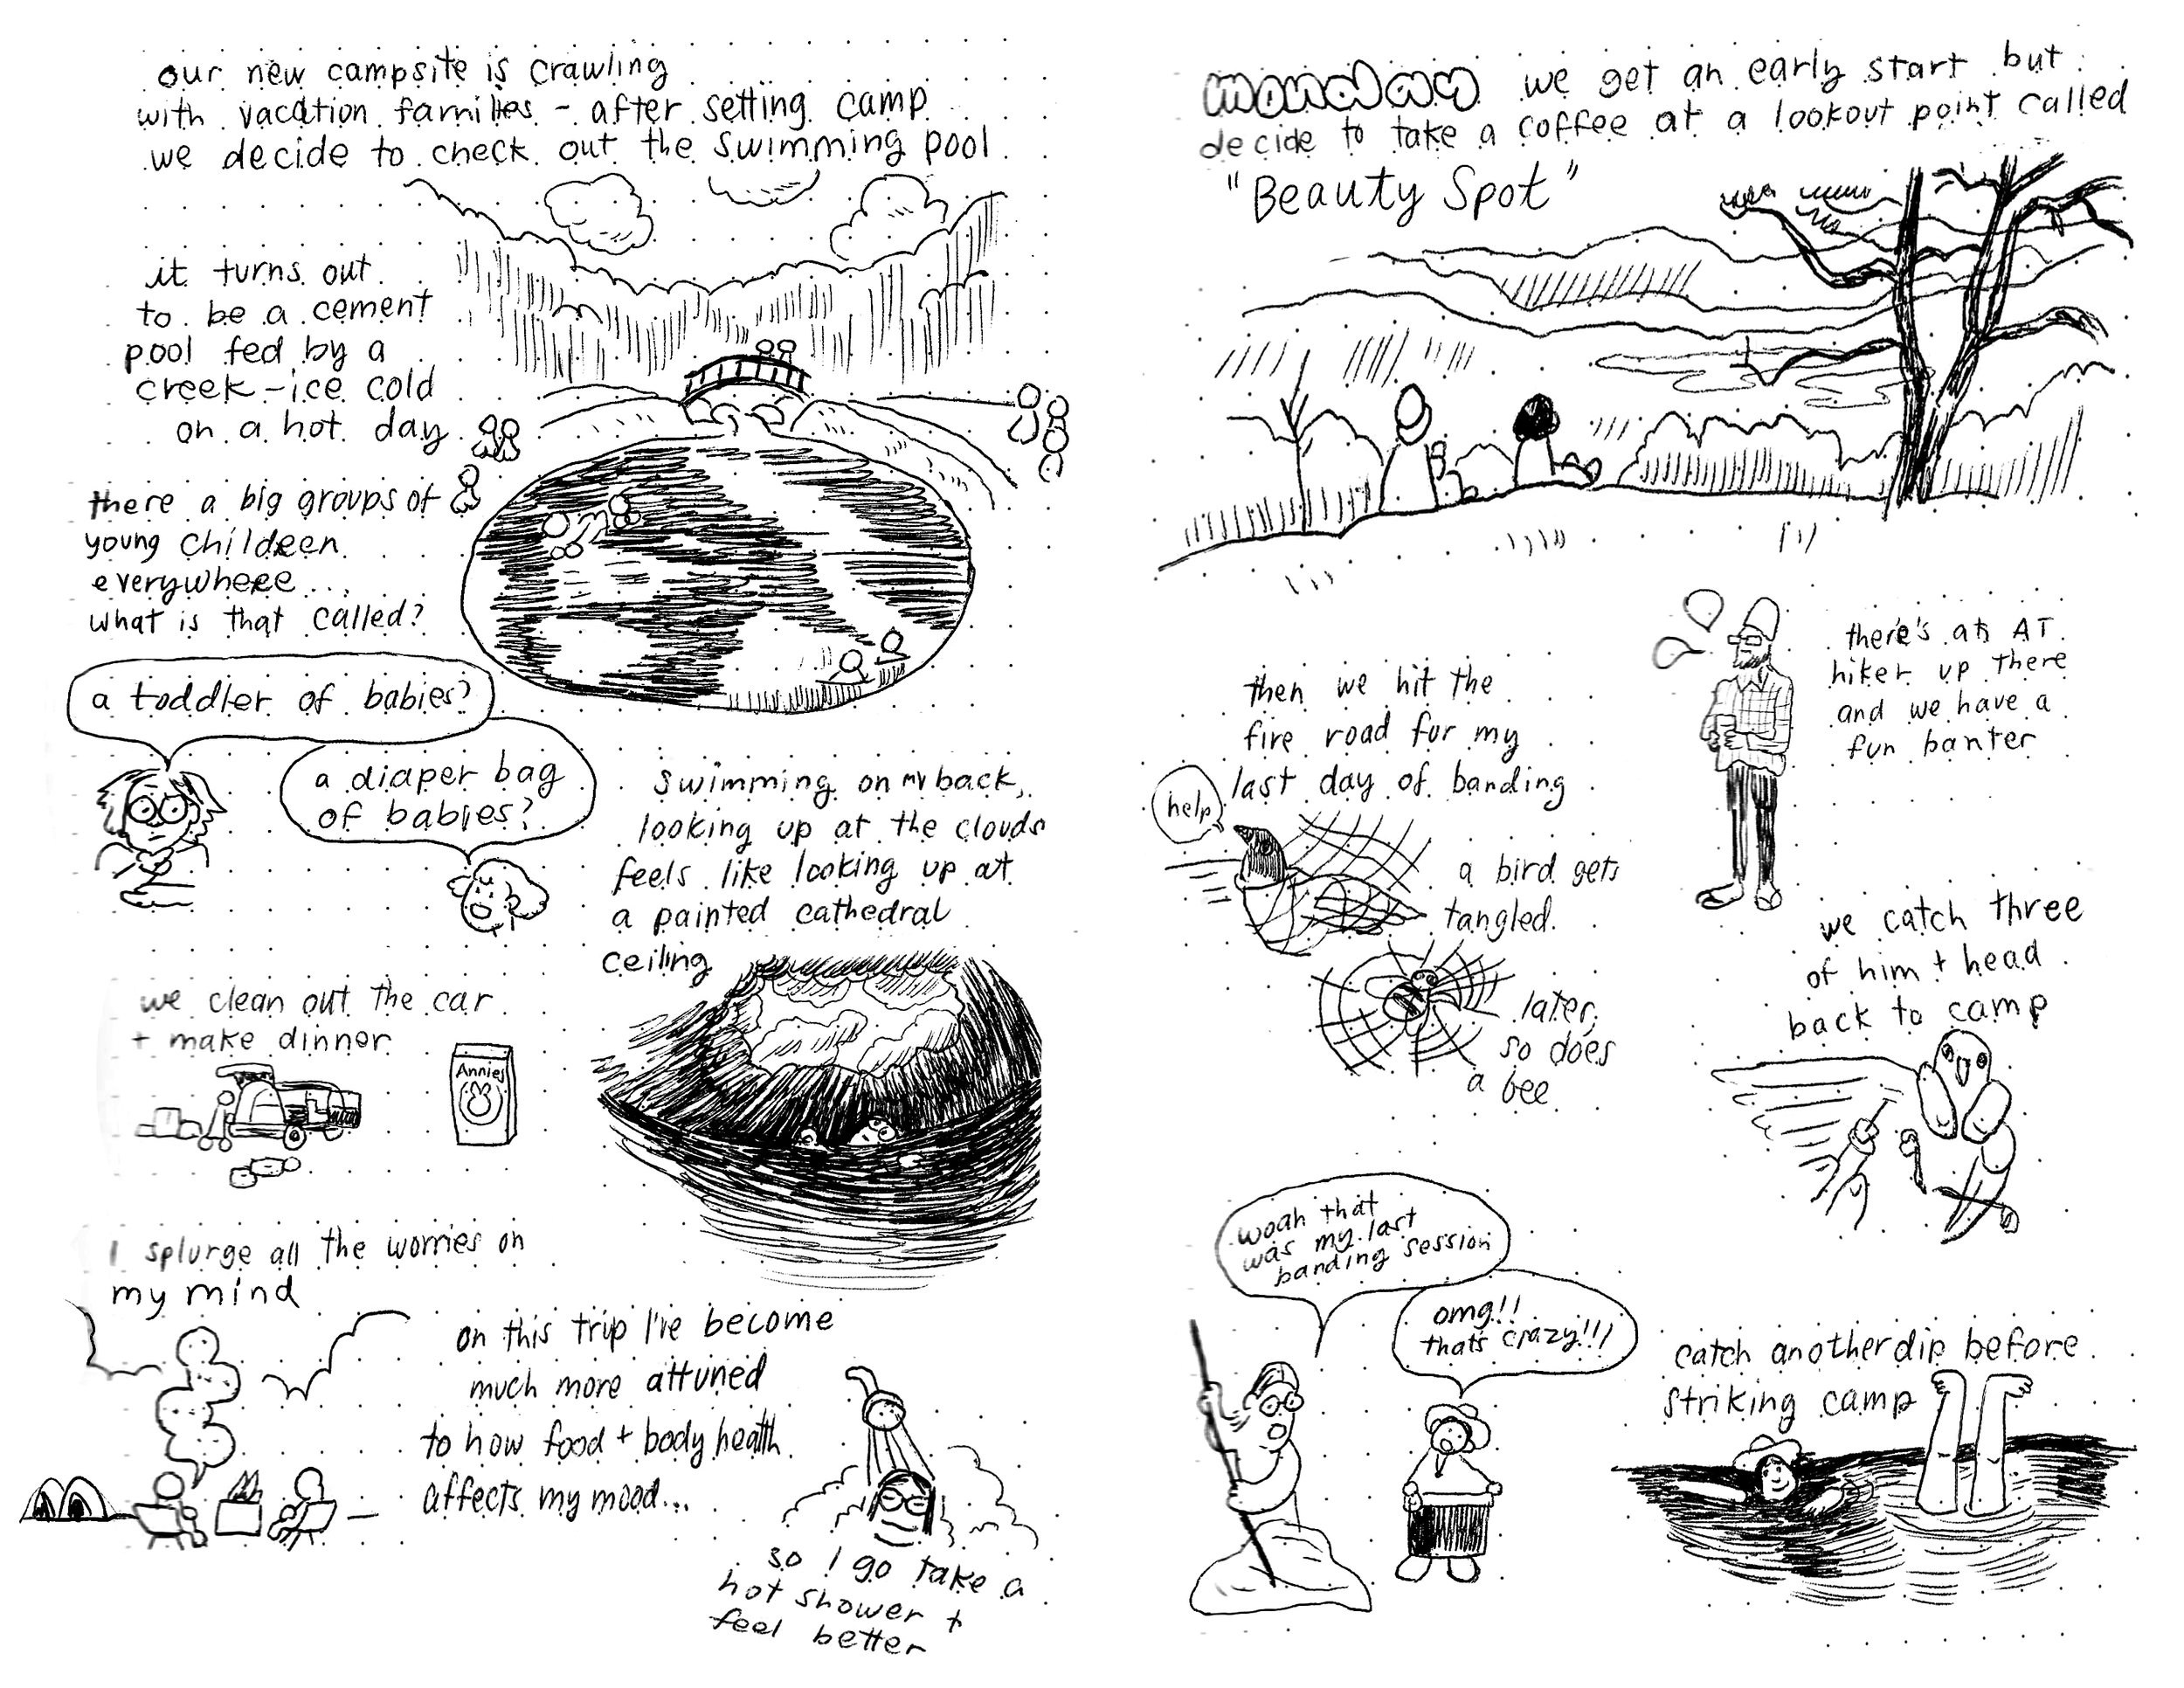 our new campsite is crawling
with vacation families - after setting camp
we decide to check out the swimming pool
it turns out
to be a cement
pool fed by a
creek - ice cold
on a hot day
there a big groups of
young children
everywhere...
what is that called?
a toddler of babies?
a diaper bag
of babies?
swimming on my back,
looking up at the clouds
feels like looking up at
a painted cathedral
ceiling
we clean out the car
+ make dinner
Annies
I splurge all the worries on
my mind
on this trip I've become
much more attuned
to how food + body health
affects my mood...
so I go take a
hot shower +
feel better
monday we get an early start but
decide to take a coffee at a lookout point called
"Beauty Spot"
there's an AT
hiker up there
and we have a
fun banter
then we hit the
fire road for my
last day of banding
help
a bird gets
tangled.
later,
so does
a bee
we catch three
of him + head
back to camp
woah that
was my last
banding session
omg!!
thats crazy!!!
catch another dip before
striking camp